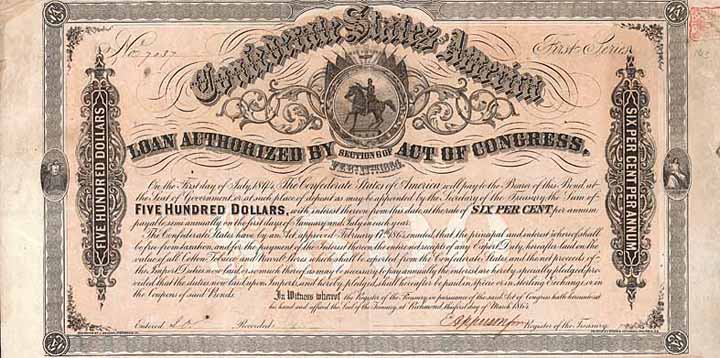 No. 7037 First Series
Confederate States America
LOAN AUTHORIZED BY SECTION 6 OF ACT OF CONGRESS,
FEB. 17TH 1864.
FIVE HUNDRED DOLLARS
SIX PER CENT PER ANNUM
On the First day of July 1894, The Confederate States of America will pay to the Bearer of this Bond, at the
Seat of Government, or at such place of deposit as may be appointed by the Secretary of the Treasury, the Sum of
FIVE HUNDRED DOLLARS, with interest thereon from this date, at the rate of SIX PER CENT per annum
payable semi annually on the first days of January and July in each year.
The Confederate States have by an Act approved February 17th 1864 enacted that the principal and interest whereof shall
be free from taxation, and for the payment of the Interest thereon, the entire net receipts of any Export Duty, hereafter laid on the
value of all Cotton Tobacco and Naval Stores which shall be exported from the Confederate States, and the net proceeds of
the Import Duties now laid, or so much thereof as may be necessary to pay annually the interest are hereby specially pledged: pro
vided that the duties now laid upon Imports, and hereby pledged, shall hereafter be paid in specie or in sterling Exchange, or in
the Coupons of said Bonds.
In Witness whereof the Register of the Treasury, in pursuance of the said Act of Congress hath hereunto set
his hand and affixed the Seal of the Treasury, at Richmond, this first day of March 1864
Entered Recorded Register of the Treasury